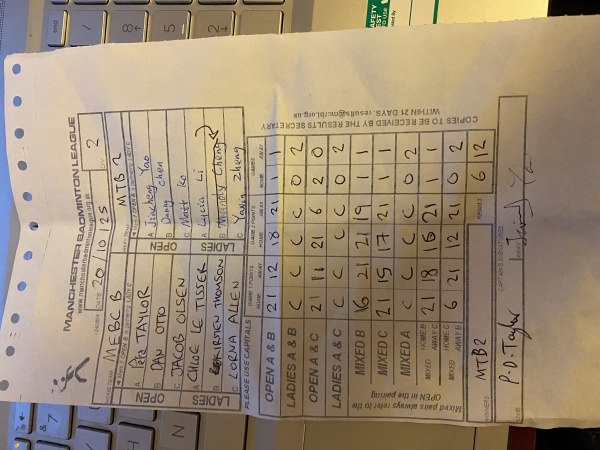 MANCHESTER BADMINTON LEAGUE
www.manchesterbadmintonleague.org.uk
FIXTURE DATE 20/10/25 DIV 2
HOME TEAM MEBC B
AWAY TEAM MTB 2
OPEN A TAYLOR A Jiacheng Yao
B DAN OTTO B Dang chen
C JACOB OLSEN C Matt Ko
LADIES A CHLOE LE TISSER A Lycia Li
B KIRSTEN THOMSON B Cheng
C LORNA ALLEN C Yaxin Zheng
PLEASE USE CAPITALS
GAME 1 POINTS GAME 2 POINTS GAMES
HOME AWAY HOME AWAY HOME AWAY
OPEN A & B 21 12 18 21 1 1
LADIES A & B C C C C 0 2
OPEN A & C 21 11 21 6 2 0
LADIES A & C C C C C 0 2
MIXED B 16 21 21 19 1 1
MIXED C 21 15 17 21 1 1
MIXED A C C C C 0 2
MIXED HOME B AWAY C 21 18 16 21 1 1
MIXED HOME C AWAY B 6 21 12 21 0 2
Mixed pairs always refer to the
OPEN in the pairing
RESULT 6 12
WINNERS MTB2
CAPTAIN'S SIGNATURES
P.D. Taylor
COPIES TO BE RECEIVED BY THE RESULTS SECRETARY
WITHIN 21 DAYS. results@mcrbl.org.uk
SAFETY